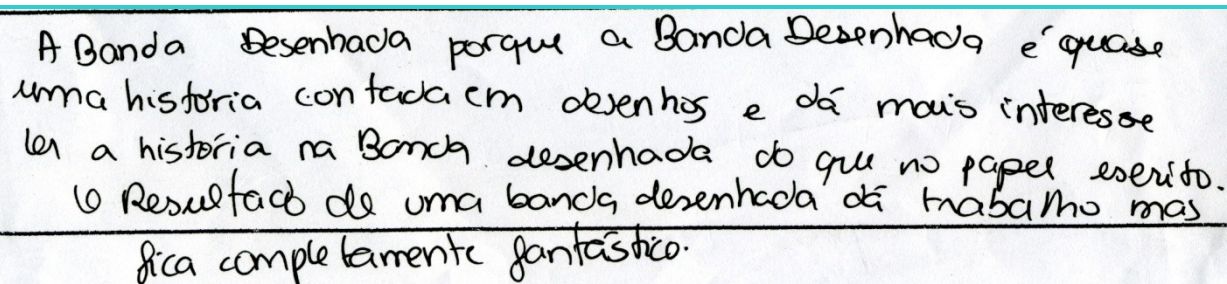 A Banda Desenhada porque a Banda Desenhada é quase
uma história contada em desenhos e dá mais interesse
ler a história na Banda desenhada do que no papel escrito.
O Resultado de uma banda desenhada dá trabalho mas
fica completamente fantástico.